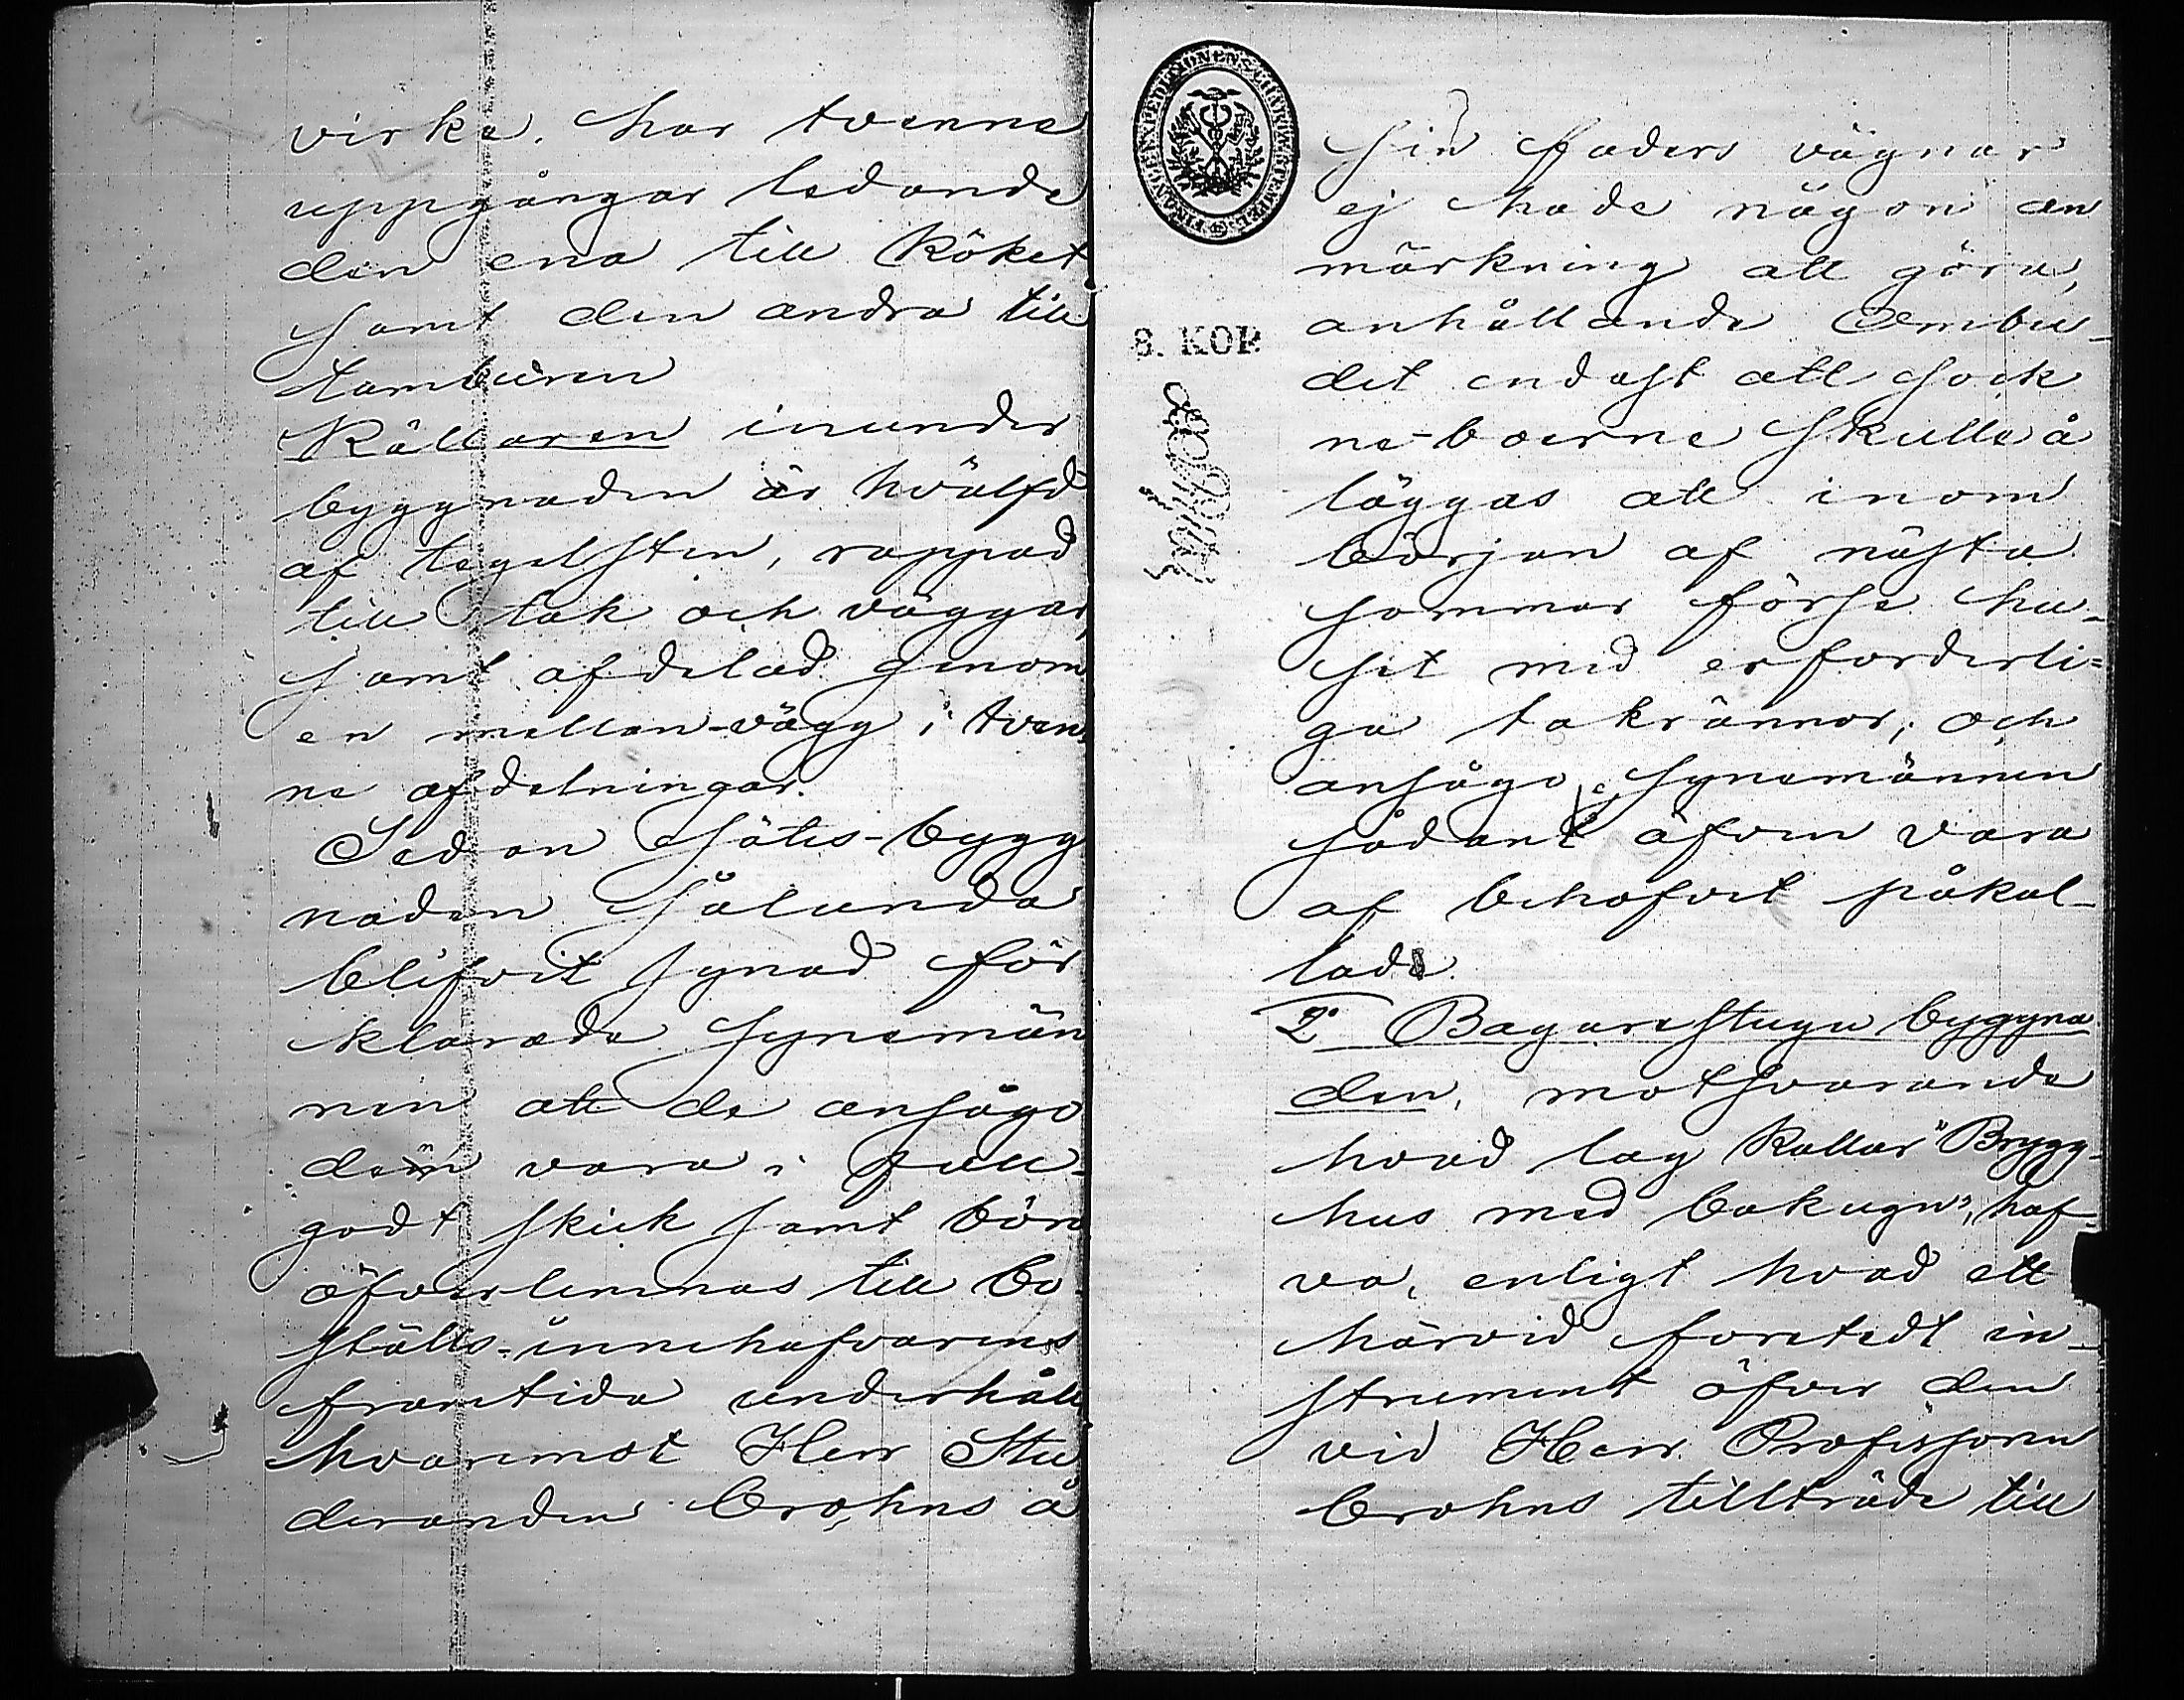 virke. har tvenne
uppgångar ledande
den ena till Köket
samt den andra till
tamburen
Källaren inunder
byggnaden är hvälfd
af tegelsten, rappad
till tak och väggar,
samt afdelad genom
en mellan-vägg i tven
ne afdelningar.
Sedan sätes-bygg
naden sålunda
blifvit synad för
klarade Synemän
nen att de ansågo
den vara i full-
godt skick samt böra
öfverlemnas till bo-
ställs-innehafvarens
framtida underhåll
hvaremot Herr Stu
deranden Crohns å
sin faders vägnar
ej hade någon an
märkning att göra,
anhållande Ombu-
det endast att Sock
ne-boerne skulle å
läggas att inom
början af nästa
sommar förse hu-
set med erforderli=
ga takrännor; och
ansågo Synemännen
sådant äfven vara
af behofvet påkal-
lade.
2° Bagarestugu byggna
den, motsvarande
hvad lag kallar "Brygg-
hus med bakugn", haf-
va, enligt hvad ett
härvid företedt in-
strument öfver den
vid Herr Professoren
Crohns tillträde till
FINANCE EXPEDITIONENS CHARTÆ STEMPEL
8. KOP.